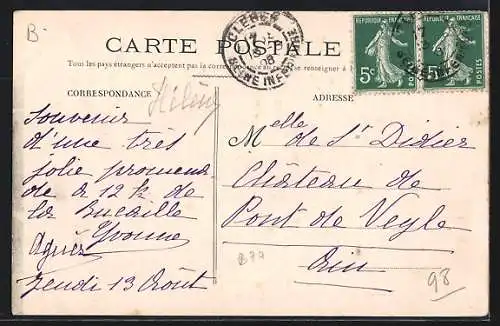 B-
CARTE POSTALE
Tous les pays étrangers n'acceptent pas la correspondance
se renseigner à
CLÈRES
08
SEINE INFRE
REPUBLIQUE FRANÇAISE
5c
POSTES
REPUBLIQUE FRANÇAISE
5c
POSTES
CORRESPONDANCE
Hélène
Souvenir
d'une très
jolie promena-
de à 12 k de
la Bucaille
Yvonne
Agnès
Jeudi 13 Août
ADRESSE
Melle de St Didier
Château de
Pont de Veyle
Ain
B77
98